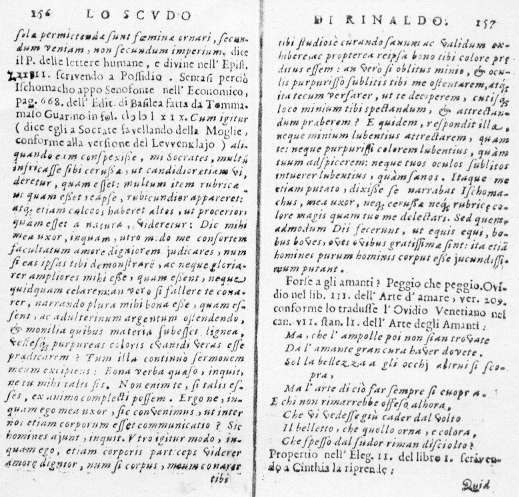 156 LO SCVDO
sola permittenda sunt fœmina ornari, secun-
dum veniam; non secundum imperium, dice
il P. delle lettere humane, e divine nell' Epist.
scrivendo a Possidio. Sentasi perciò
Ischomacho appo Senofonte nell' Economico,
pag. 668. dell' Edit. di Basilea fatta da Tomma-
maso Guarino in fol. Cum igitur
(dice egli a Socrate favellando della Moglie,
conforme alla versione del Levvenklajo) ali-
quando eam conspexisse, mi Socrates, multũ
infricasse sibi cerussa, ut candidior etiam vi,
deretur, quam esset: multum item rubrica
ut quam esset reapse, rubicundior appareret:
atq; etiam calceos; haberet altos, ut procerior;
quàm esset a natura, videretur: Dic mihi
mea uxor, inquam, utro m.do me consortem
facultatum amore digniorem judicares, num
si eas ipsas tibi demonstrarẽ, ac neque gloria-
rer ampliores mihi esse, quam essent, neque
quidquam celarem; an vero si fallere te cona-
rer, narrando plura mihi bona esse, quam es-
sent, ac adulterinum argentum ostendendo,
& monilia quibus materia subesset lignea,
vestesq; purpureas coloris evanidi veras esse
prædicarem? Tum illa continuò sermonem
meum excipiens: Bona verba quæso, inquit,
ne tu mihi talis sis. Non enim te, si talis es-
ses, ex animo complecti possem. Ergo ne, in-
quam ego mea uxor, sic convenimus, ut inter
nos etiam corporum esset communicatio? Sic
homines ajunt, inquit. Vtro igitur modo, in-
quam ego, etiam corporis particeps viderer
amore dignior, num si corpus, meum conarer
tibi
DI RINALDO. 157
tibi studiosè curando sanum ac validum ex-
hibere, ac propterea reipsa bono tibi colore præ-
ditus essem: an verò si oblitus minio, & ocu-
lis purpurisso sublitis tibi me ostentarem, atq;
ita tecum versarer, ut te deciperem, cutisq;
loco minium tibi spectandum, & attrectan-
dum præberem? Equidem, respondit illa,
neque minium lubentius attrectarem, quam
te: neque purpurissi colorem lubentius, quàm
tuum adspicerem: neque tuos oculos sublitos
intuerer lubentius, quàm sanos. Itaque me
etiam putato, dixisse se narrabat Ischoma-
chus, mea uxor, neq; cerussa neq; rubricę co-
lore magis quam tuo me delectari. Sed quem-
admodum Dii fecerunt, ut equis equi, bo-
bus boves, oves ovibus gratissimæ sint: ita etiã
homines purum hominis corpus esse jucundissi-
mum putant.
Forse a gli amanti? Peggio che peggio. Ovi-
dio nel lib. III. dell' Arte d' amare, ver. 209.
conforme lo tradusse l' Ovidio Venetiano nel
can. VII. stan. LI. dell' Arte degli Amanti:
Ma, che l' ampolle poi non sian trovate
Da l' amante gran cura haver dovete.
Sol la bellezza a gli occhi altrui si sco-
pra,
Ma l' arte di ciò far sempre si cuopra.
E chi non rimarrebbe offeso alhora,
Che vi vedesse giù cader dal volto
Il belletto, che quello orna, e colora,
Che spesso dal sudor riman disciolto?
Propertio nell' Eleg. II. del libro I. scriven-
do a Cinthia la riprende:
Quid